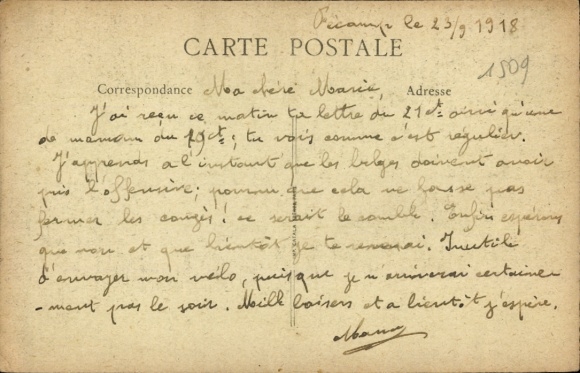 Fécamp le 23/9 1918
CARTE POSTALE
1509
Correspondance Ma chère Marie, Adresse
J'ai reçu ce matin ta lettre du 21ct ainsi qu'une
de maman du 19ct; tu vois comme c'est régulier.
J'apprends à l'instant que les belges doivent avoir
pris l'offensive; pourvu que cela ne fasse pas
fermer les congés! ce serait le comble. Enfin espérons
que non et que bientôt je te reverrai. Inutile
d'envoyer mon vélo, puisque je n'arriverai certaine-
-ment pas le soir. Mille baisers et à bientôt j'espère.